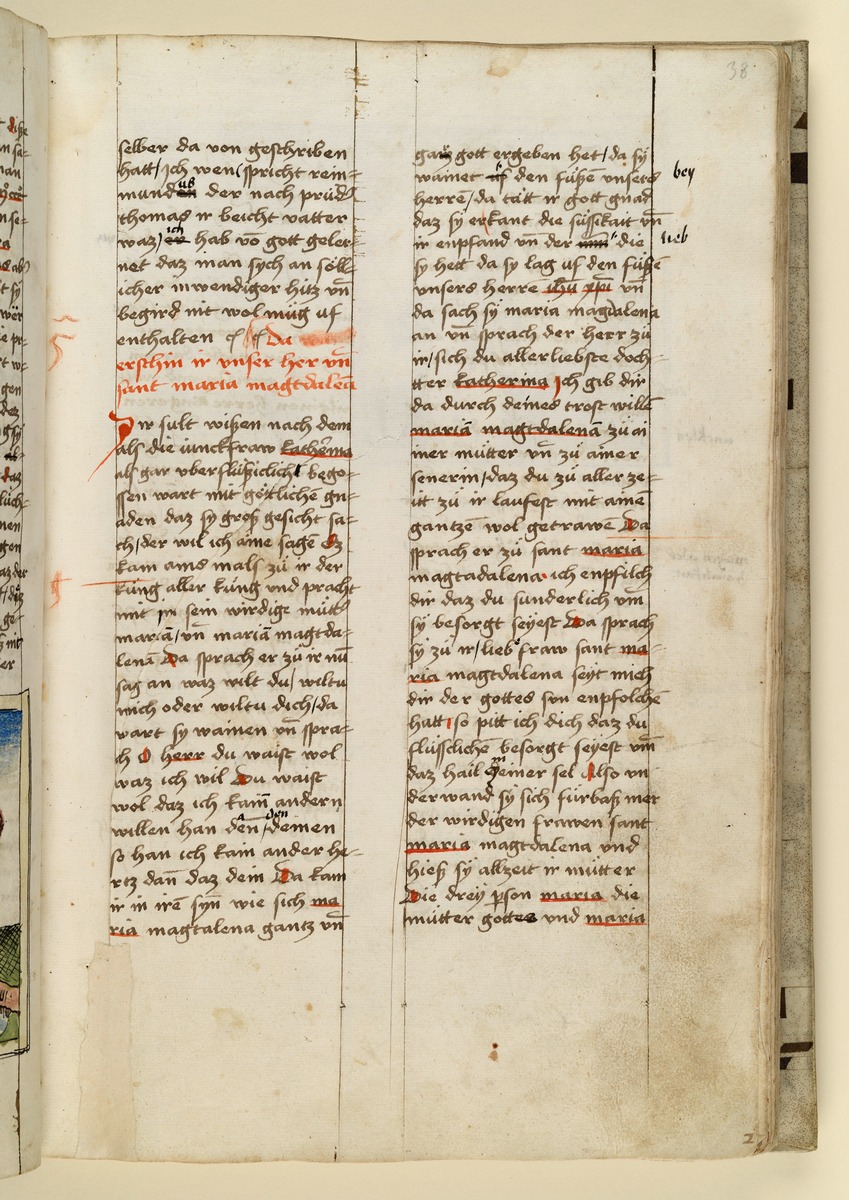 38
selber da von geschriben
hatt / Ich wen (spricht rein-
mund us der nach prūd
thomas ir beicht vatter
waz / ich hab vō gott geler-
net daz man sych an söll-
icher inwendiger hitz vn̄
begird nit wol müg uf
enthalten Da
erschin ir vnser her vn̄
sant maria magtdalēa
Ir sult wißen nach dem
als die iunckfraw katherīna
als gar vberflüßiclich bego-
ssen wart mit götlichē gn-
aden daz sy groß gesicht sa-
ch / der wil ich aine sagē Ez
kam ains mals zů ir der
küng aller küng vnd pracht
mit im sein wirdige mütt
mariā / vn̄ mariā magtda-
lenā Da sprach er zů ir nū
sag an waz wilt du / wiltu
mich oder wiltu dich / da
wart sy wainen vn̄ spra-
ch O herr du waist wol
waz ich wil Du waist
wol daz ich kain̄ andern
willen han den deinen
so han ich kain ander he-
rtz dan̄ daz dein Da kam
ir in irē syn̄ wie sich ma
ria magtalena gantz vn̄
gar gott ergeben het / da sy
wainet uf den füßen vnsers bey
herrē / da tätt ir gott gnad
daz sy erkant die süssikait vn̄
ir enpfand vn̄ der die lieb
sy hett da sy lag uf den füßē
vnsers herre ihū xpī vn̄
da sach sy maria magdalena
an vn̄ sprach der herr zů
ir / sich du allerliebste doch-
tter katherina Ich gib dir
da durch deines trost willē
mariā magtdalenā zů ai
iner můtter vn̄ zů ainer
lenerin / daz du zů aller ze-
itt zů ir laufest mit ainē
gantzē wol getrawē Da
sprach er zů sant maria
magtadalena ich enpfilch
dir daz du sunderlich vm̄
sy besorgt seyest Da sprach
sy zů ir / lieb fraw sant ma-
ria magtdalena seyt mich
dir der gottes sun enpfolchē
hatt so pitt ich dich daz du
flüsslichē besorgt seyest vm̄
daz hail meiner sel Also vn
derwand sy sich fürbaß mer
der wirdigen frawen sant
maria magtdalena vnd
hieß sy allzeit ir můtter
Die drey pson maria die
můtter gottes vnd maria